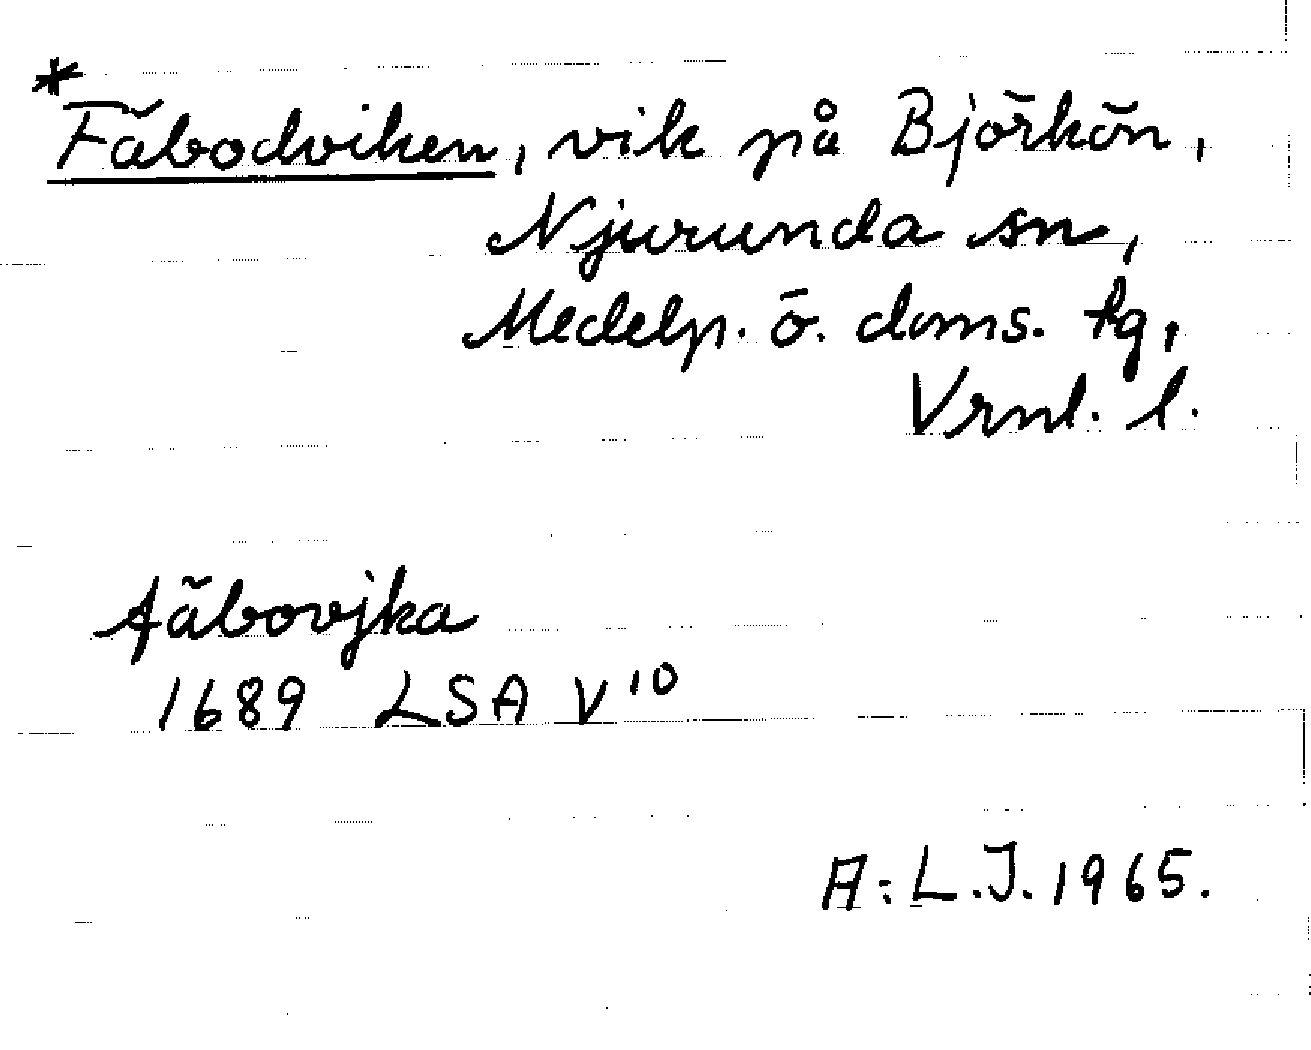 *Fäbodviken, vik på Björkön,
Njurunda sn,
Medelp. ö. doms. tg,
Vrnl. l.
fäbovjka
1689 LSA V¹⁰
A:L.J. 1965.